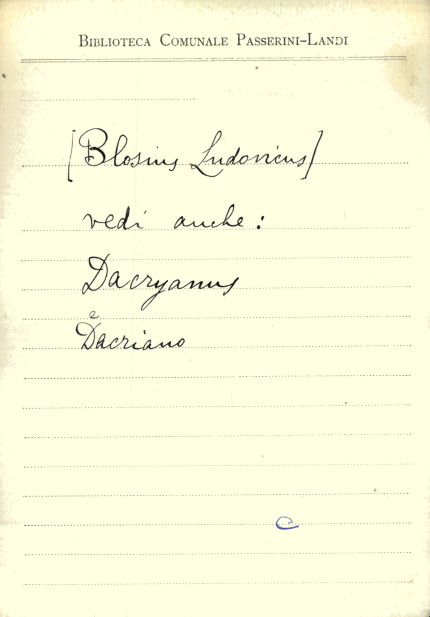 BIBLIOTECA COMUNALE PASSERINI-LANDI
[Blosius Ludovicus]
vedi anche:
Dacryanus
e
Dacriano
C